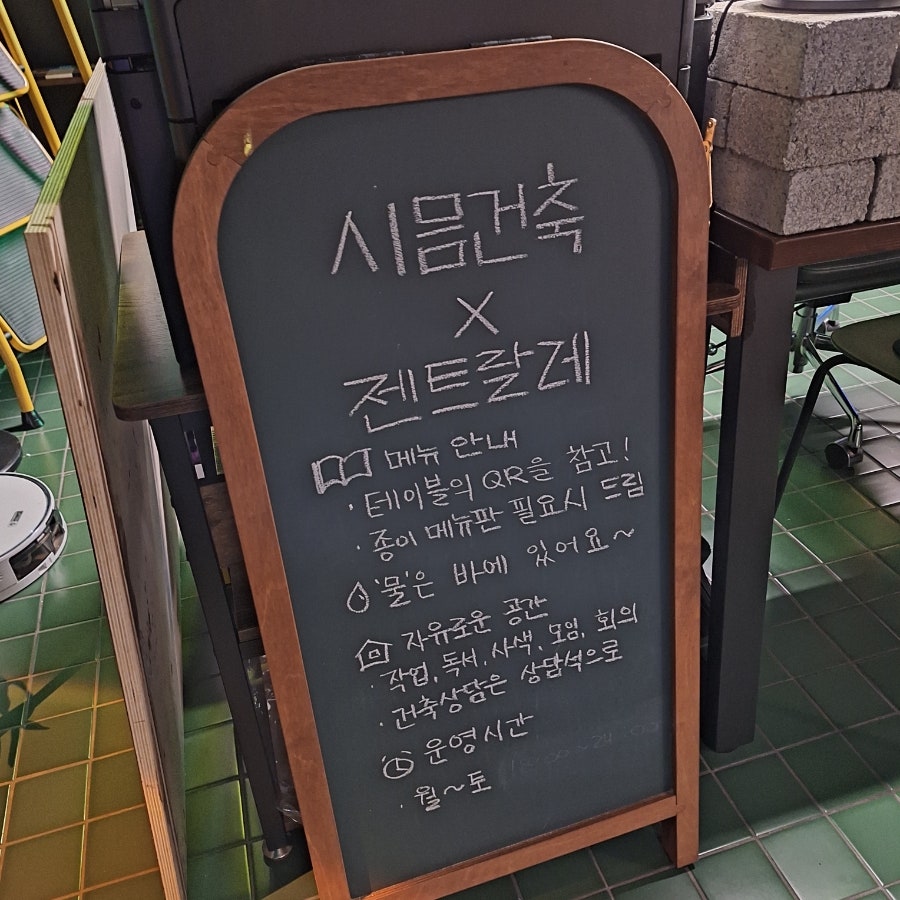 시믐건축
×
젠트랄레
메뉴 안내
· 테이블의 QR을 참고!
· 종이 메뉴판 필요시 드림
'물'은 바에 있어요~
자유로운 공간
· 작업, 독서, 사색, 모임, 회의
· 건축상담은 상담석으로
운영시간
· 월~토